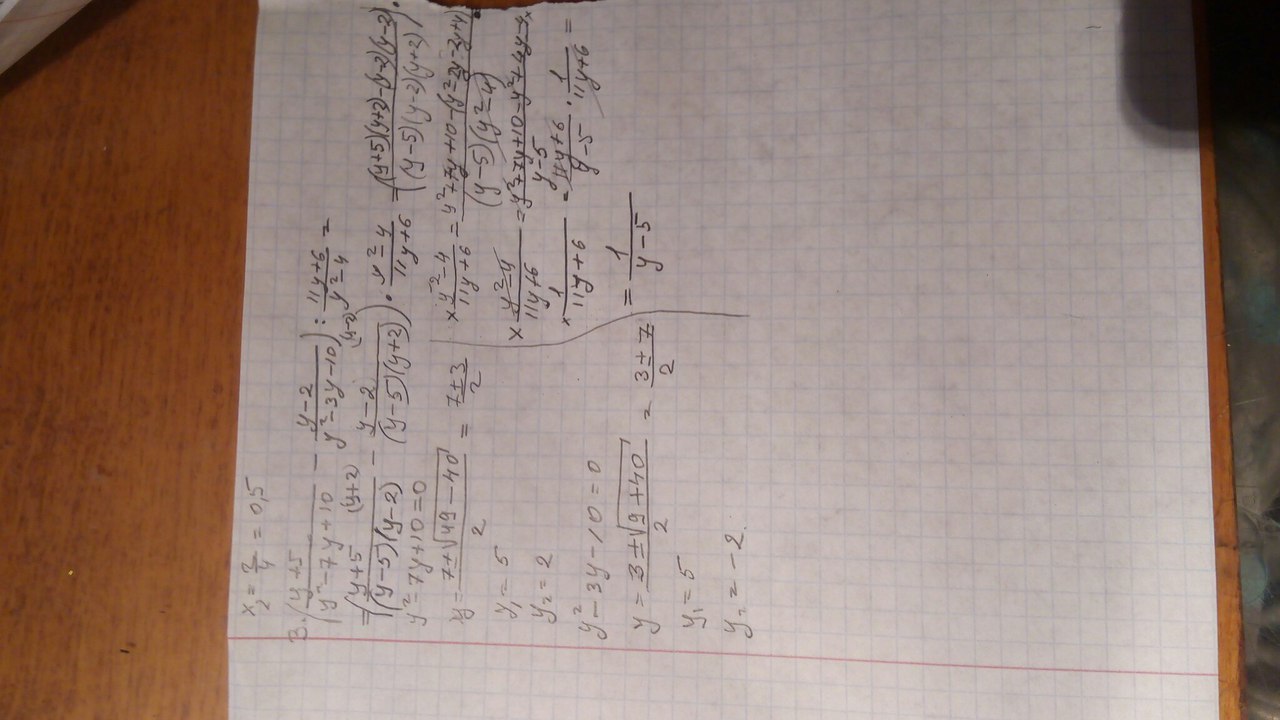 x₂ = 2/4 = 0,5
3. ((y+5)/(y²-7y+10) - (y-2)/(y²-3y-10)) : (11y+6)/(y²-4) =
= ((y+5)(y+2)/((y-5)(y-2)) - (y-2)(y-2)/((y-5)(y+2))) · (y²-4)/(11y+6) = ((y+5)(y+2)-(y-2)(y-2))/((y-5)(y-2)(y+2)) ·
y²-7y+10=0
y = (7±√(49-40))/2 = (7±3)/2
y₁ = 5
y₂ = 2
y²-3y-10=0
y = (3±√(9+40))/2 = (3±7)/2
y₁ = 5
y₂ = -2
x (y²-4)/(11y+6) = (y²+7y+10-(y²-2y-2y+4))/((y-5)(y²-4)) ·
x (y²-4)/(11y+6) = (y²+7y+10-y²+4y-4)/(y-5) x
x 1/(11y+6) = (11y+6)/(y-5) · 1/(11y+6) =
= 1/(y-5)